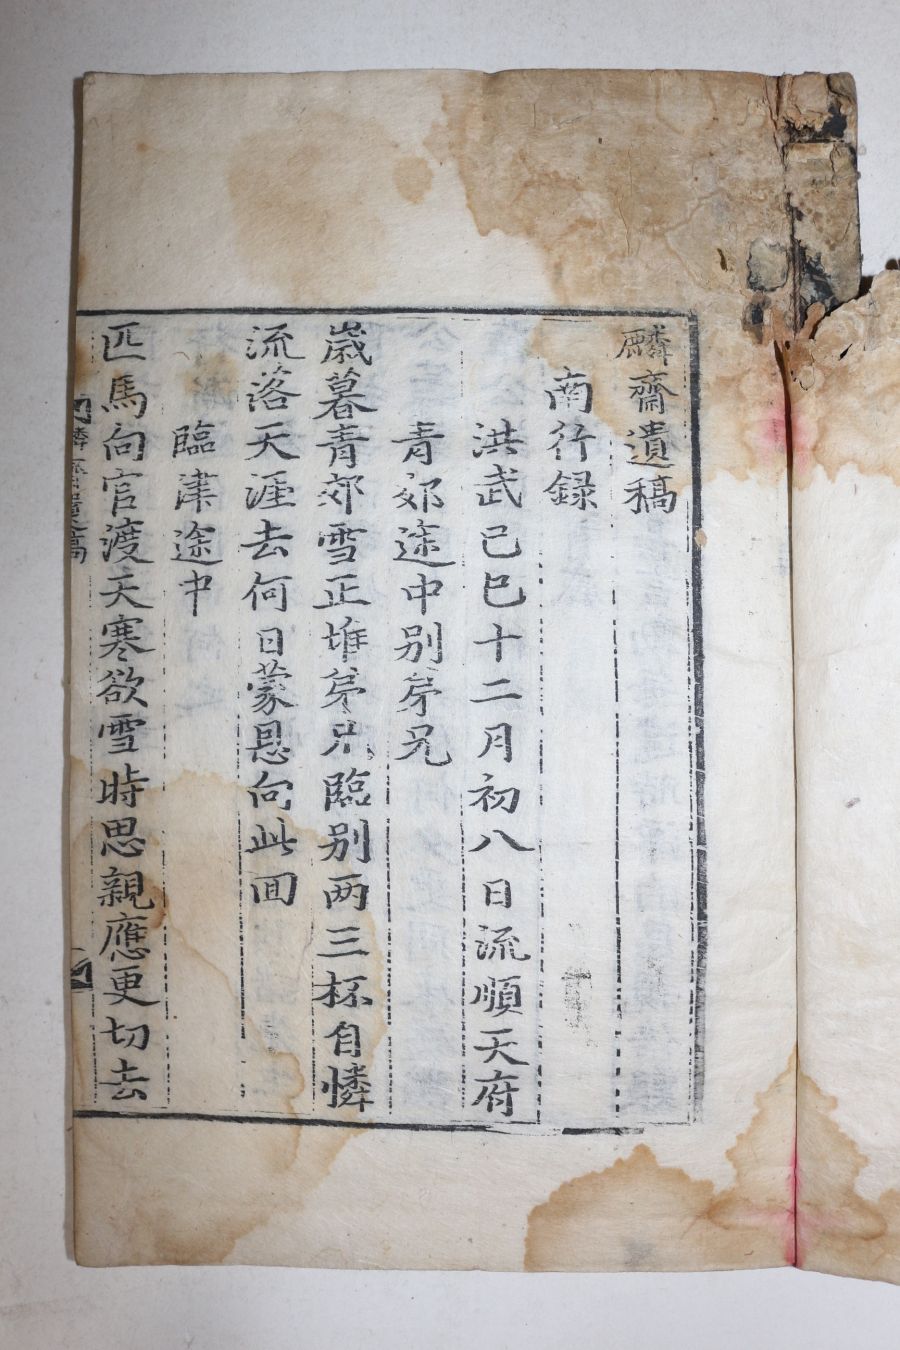 麟齋遺稿
南行録
洪武己巳十二月初八日流順天府
青郊途中别苐兄
嵗暮青郊雪正堆苐兄臨别两三杯自憐
流落天涯去何日蒙恩向此回
臨津途中
匹馬向官渡天寒欲雪時思親應更切去
麟齋遺稿